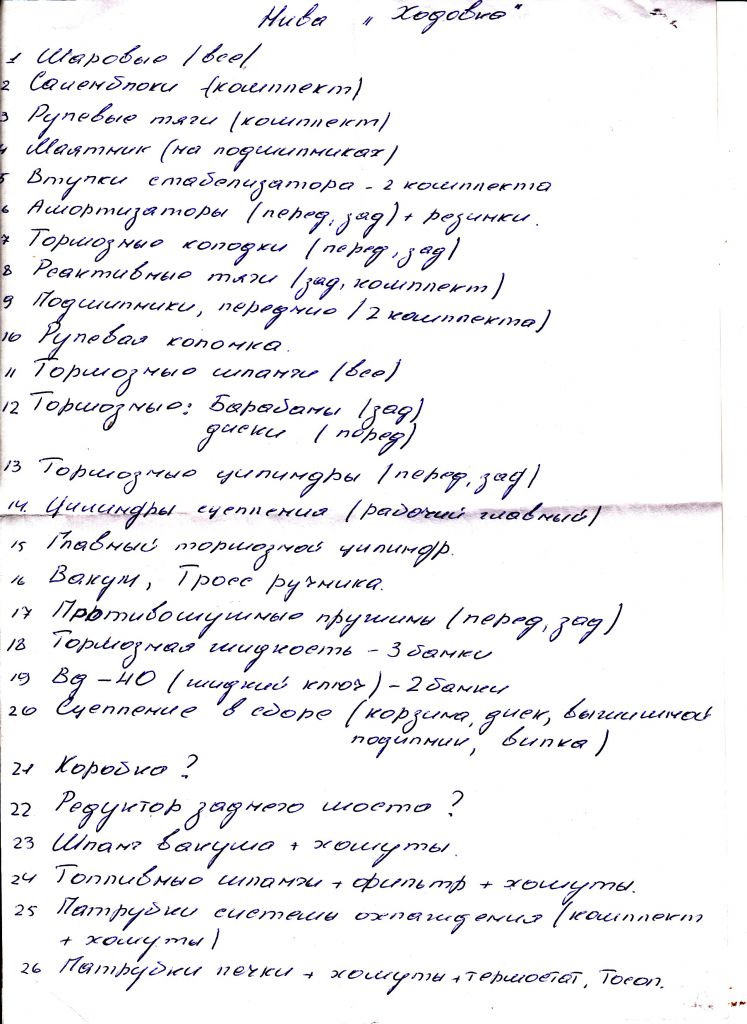 Нива „ Ходовка"
1 Шаровые (все)
2 Саленблоки (комплект)
3 Рулевые тяги (комплект)
4 Маятник (на подшипниках)
5 Втулки стабелизатора - 2 комплекта
6 Амортизаторы (перед, зад) + резинки.
7 Тормозные колодки (перед, зад)
8 Реактивные тяги (зад, комплект)
9 Подшипники, передние (2 комплекта)
10 Рулевая колонка.
11 Тормозные шланги (все)
12 Тормозные: Барабаны (зад)
диски (перед)
13 Тормозные цилиндры (перед, зад)
14. Цилиндры сцепления (рабочий главный)
15 Главный тормозной цилиндр.
16 Вакум, Тросс ручника.
17 Противошумные пружины (перед, зад)
18 Тормозная жидкость - 3 банки
19 Вд-40 (жидкий ключ) - 2 банки
20 Сцепление в сборе (корзина, диск, выжимной
подшипник, вилка)
21 Коробка ?
22 Редуктор заднего моста ?
23 Шланг вакума + хомуты.
24 Топливные шланги + фильтр + хомуты.
25 Патрубки системы охлаждения (комплект
+ хомуты)
26 Патрубки печки + хомуты + термостат, Тосол.